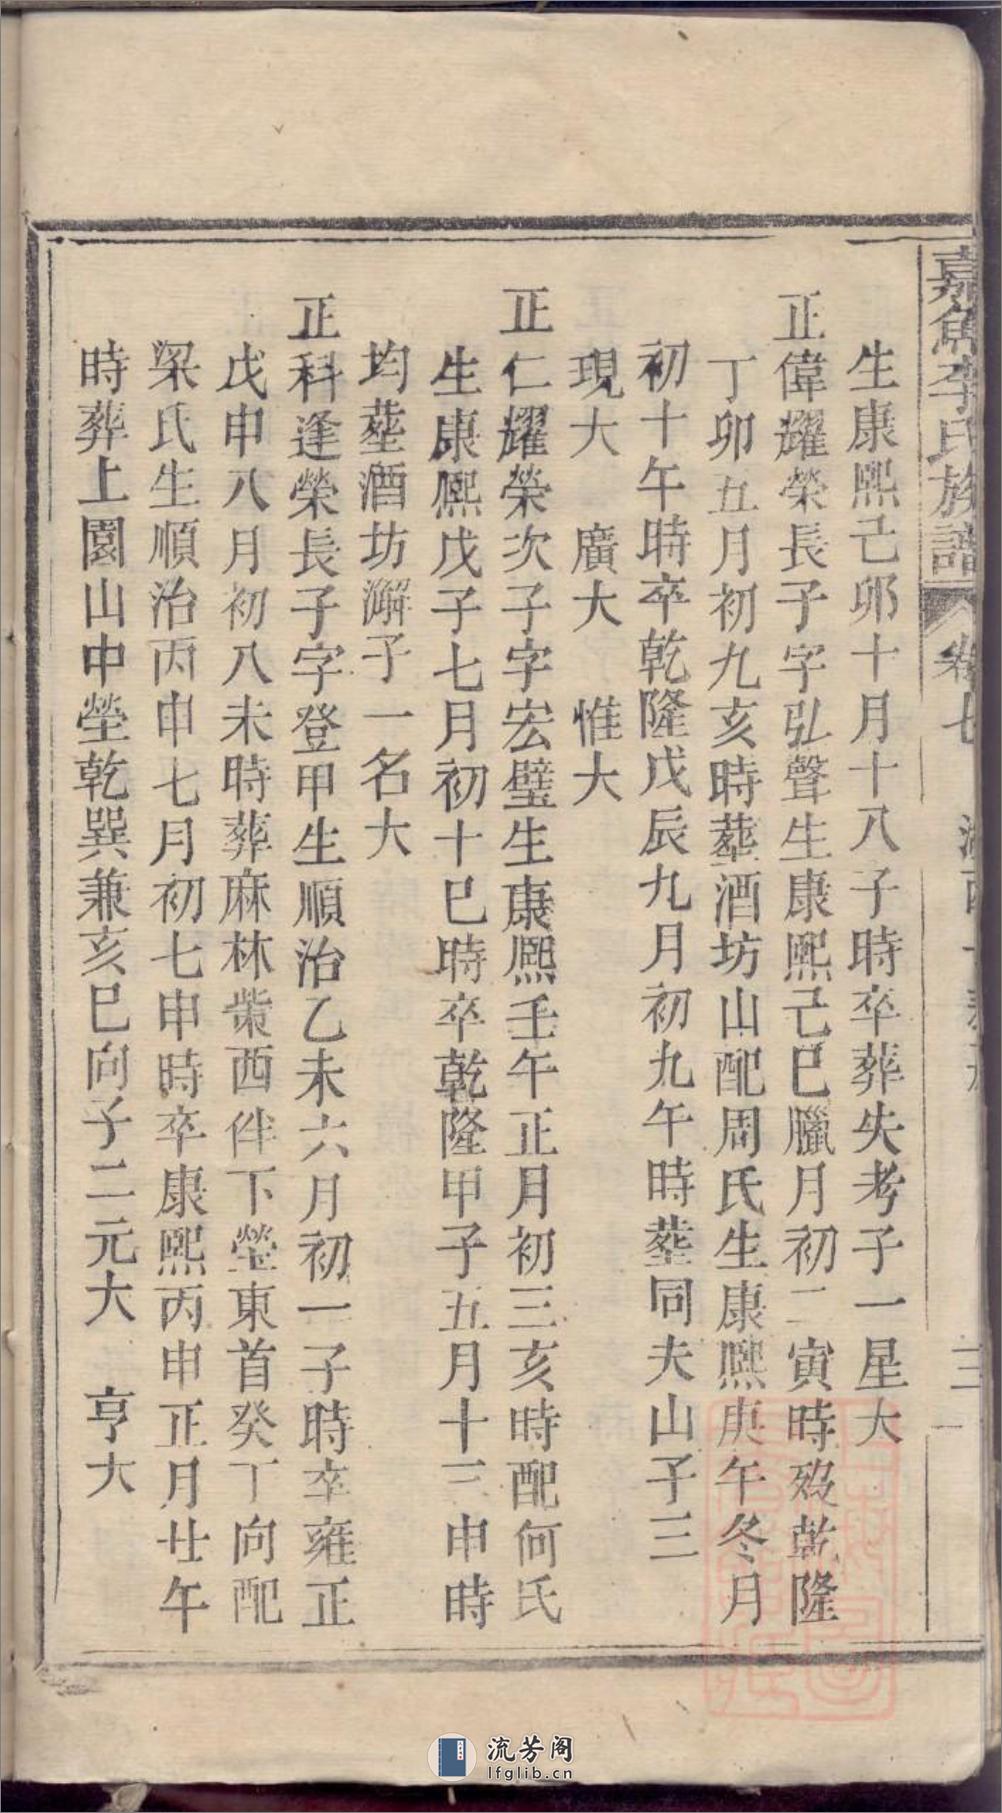 嘉魚李氏族譜 卷七
生康熙己卯十月十八子時卒葬失考子一星大
正偉耀榮長子字弘聲生康熙己巳臘月初二寅時歿乾隆
丁卯五月初九亥時塟酒坊山配周氏生康熙庚午冬月
初十午時卒乾隆戊辰九月初九午時塟同夫山子三
現大 廣大 惟大
正仁耀榮次子字宏璧生康熙壬午正月初三亥時配何氏
生康熙戊子七月初十巳時卒乾隆甲子五月十三申時
均塟酒坊澥子一名大
正科逢榮長子字登甲生順治乙未六月初一子時卒雍正
戊申八月初八未時葬麻林柴西伴下塋東首癸丁向配
梁氏生順治丙申七月初七申時卒康熙丙申正月廿午
時葬上園山中塋乾巽兼亥巳向子二元大 亨大
流芳阁
lfglib.cn